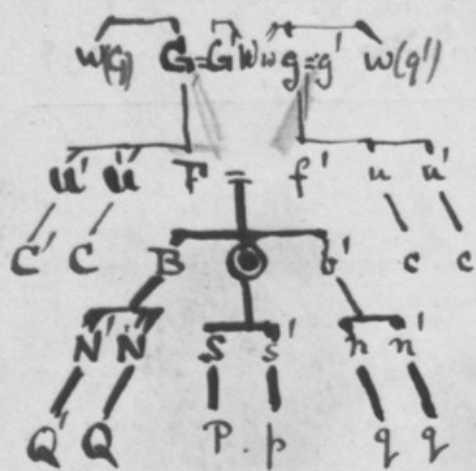 w(G) G=G' W w g=g' w(g')
u' u F = f' u u'
C' C B b' c c
N' N S s' n n'
Q' Q P. p q q